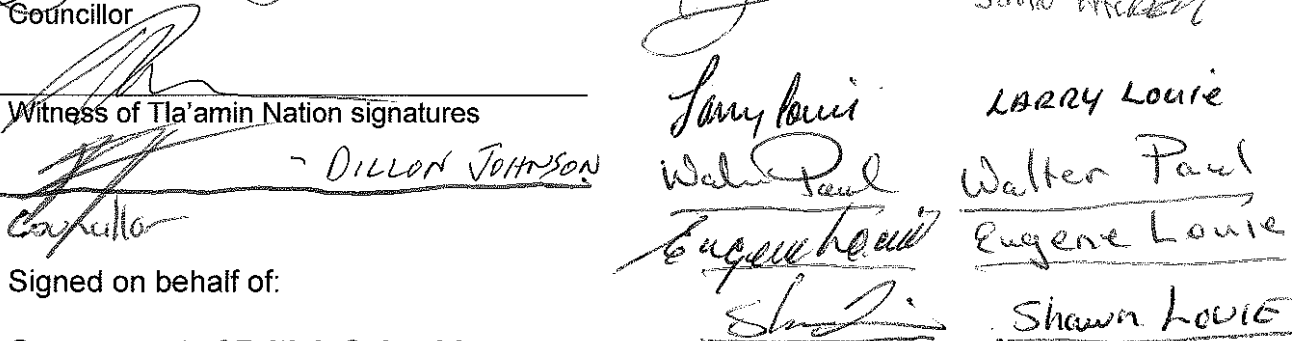 Councillor
Witness of Tla'amin Nation signatures
- DILLON JOHNSON
Councillor
Signed on behalf of:
Larry Louie LARRY LOUIE
Walter Paul Walter Paul
Eugene Louie Eugene Louie
Shawn LOUIE